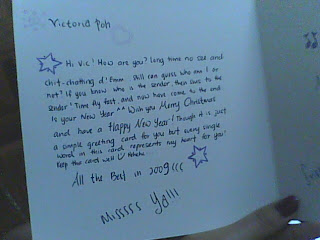 Victoria Poh
Hi Vic! How are you? long time no see and
chit-chatting d' Emm Still can guess who am I or
not? If you know who is the sender then save to the
sender! Time fly fast and now have come to the end
Is your New Year ^^ Wish you Merry Christmas
and have a Happy New Year! Though it is just
a simple greeting card for you but every single
word in this card represents my heart for you!
Keep this card well U hehehe
All the Best in 2009(((
Misssss Ya!!!